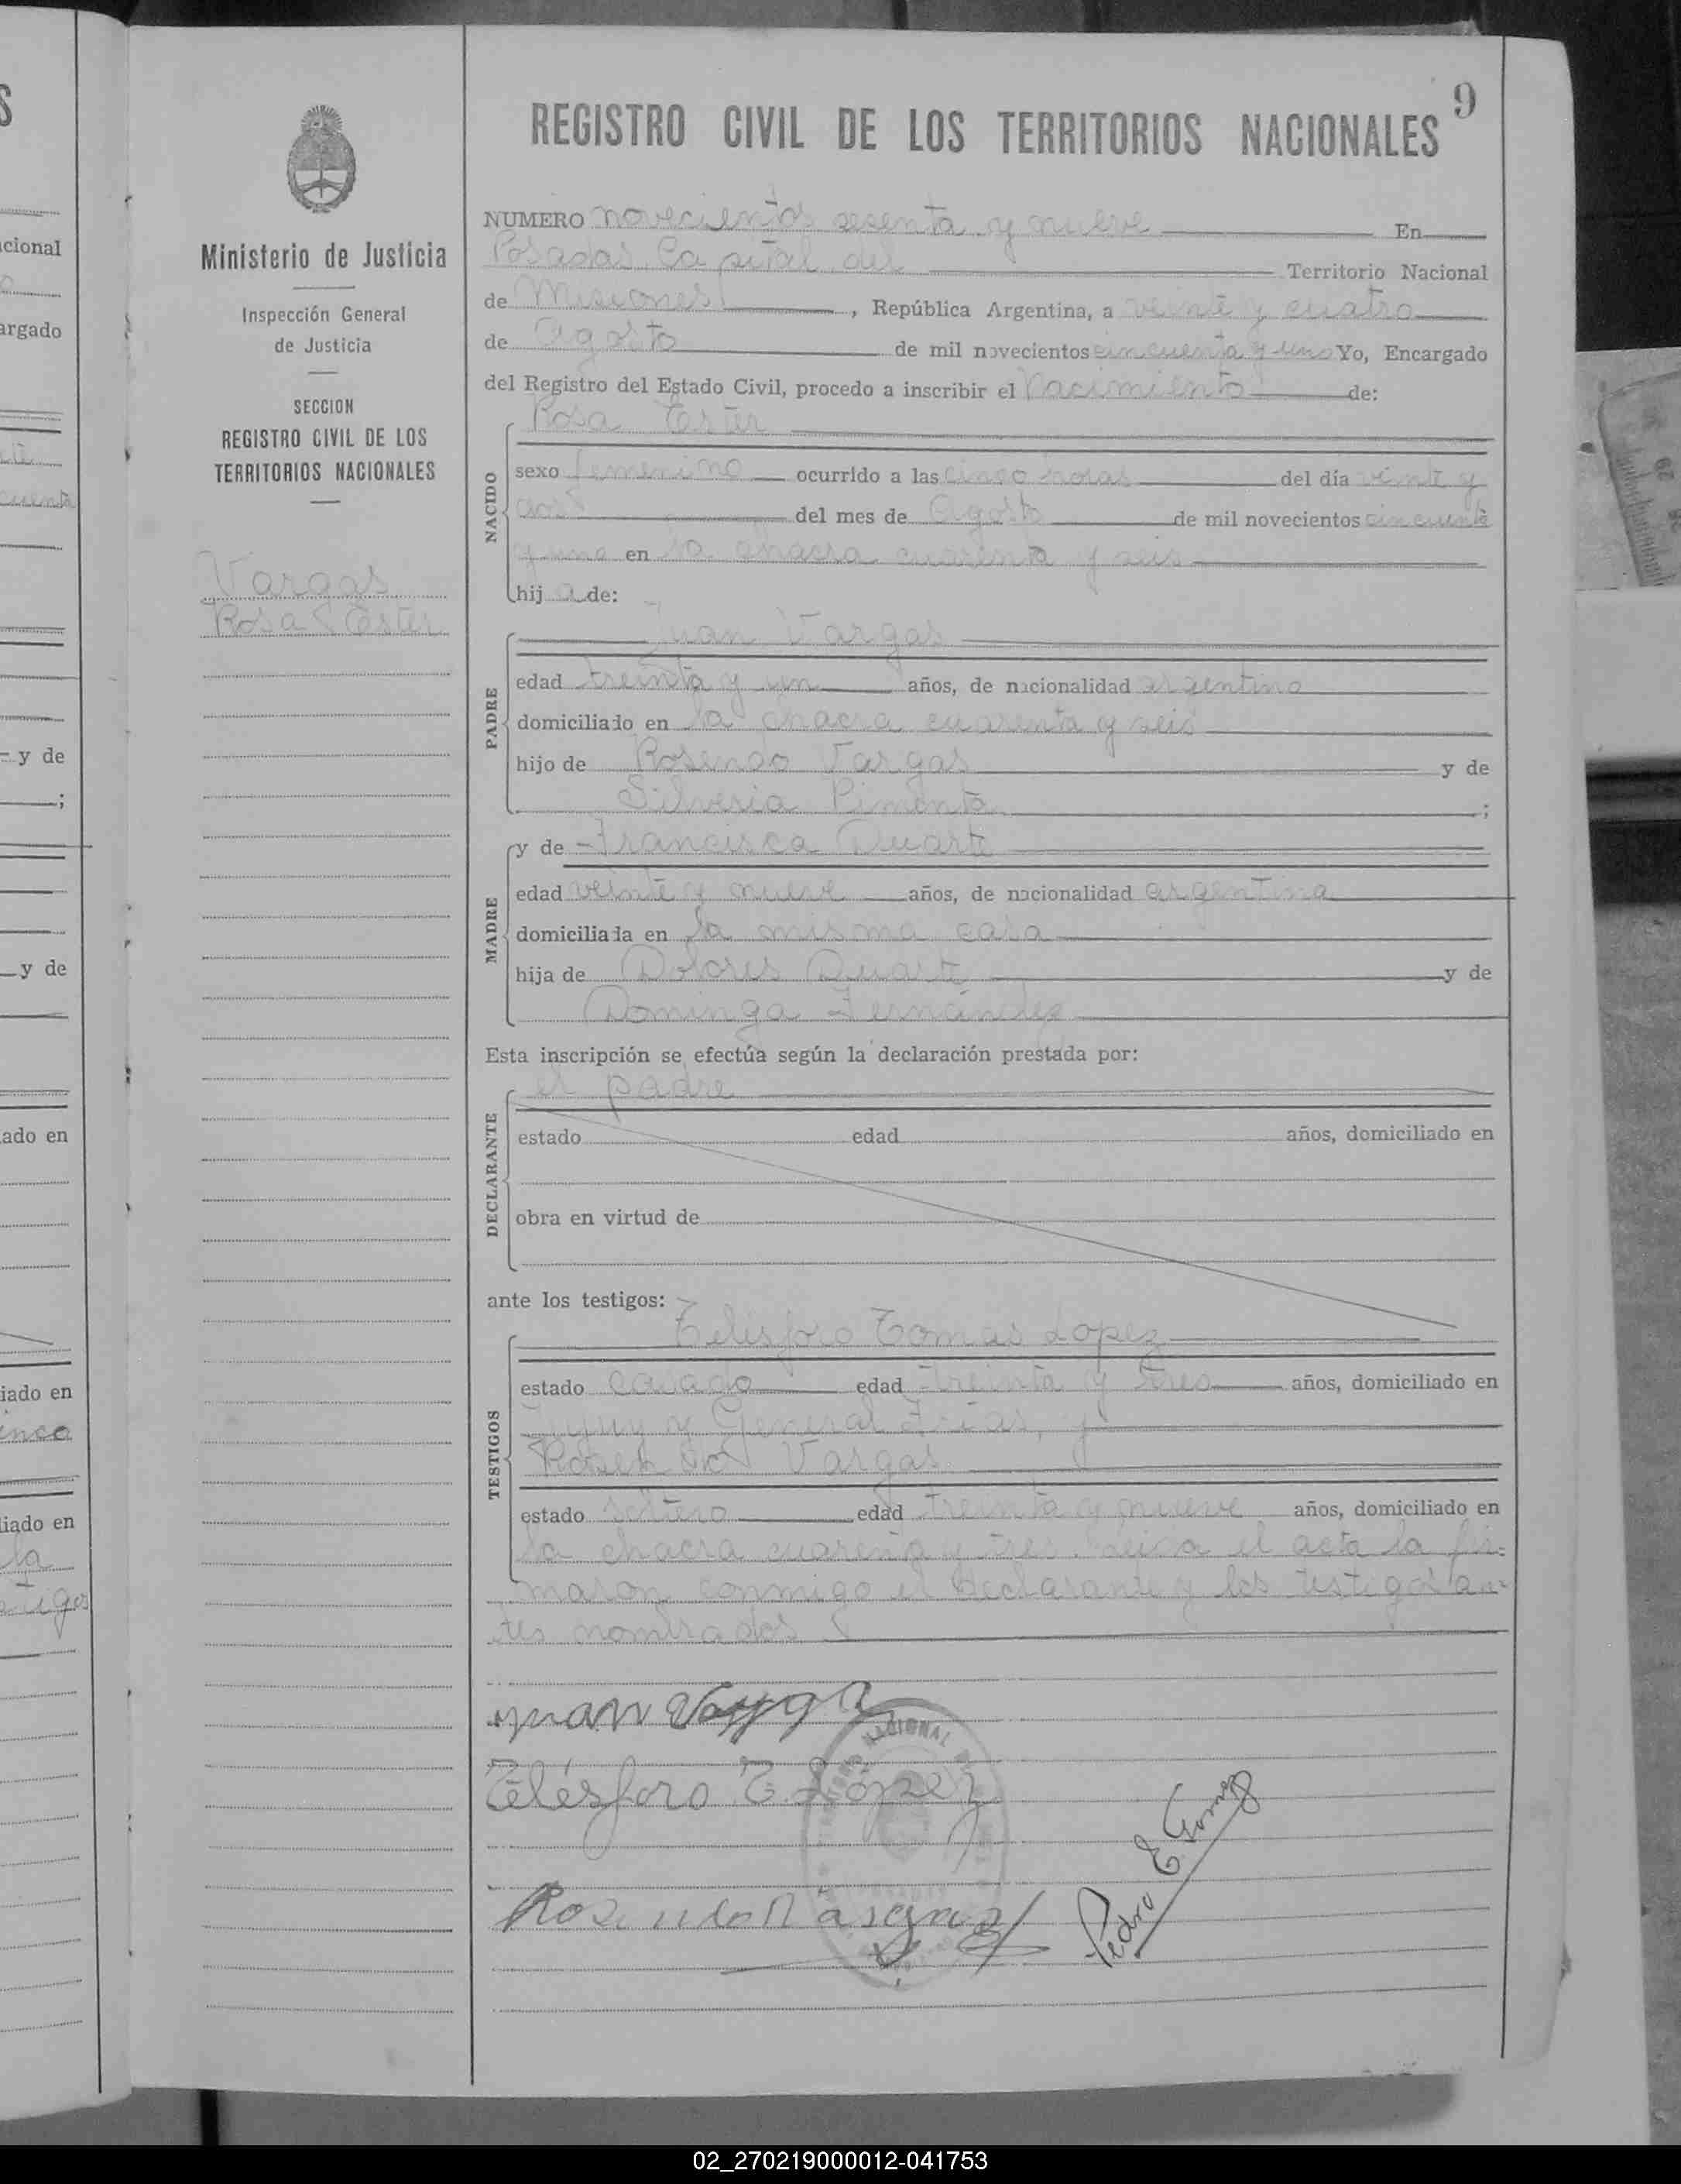 9
REGISTRO CIVIL DE LOS TERRITORIOS NACIONALES
Ministerio de Justicia
Inspección General
de Justicia
SECCION
REGISTRO CIVIL DE LOS
TERRITORIOS NACIONALES
Vargas
Rosa Ester
NUMERO novecientos sesenta y nueve En
Posadas, Capital del Territorio Nacional
de Misiones, República Argentina, a veinte y cuatro
de Agosto de mil novecientos cincuenta y uno Yo, Encargado
del Registro del Estado Civil, procedo a inscribir el Nacimiento de:
Rosa Ester
NACIDO
sexo femenino ocurrido a las cinco horas del día veinte y
dos del mes de Agosto de mil novecientos cincuenta
y uno en la chacra cuarenta y seis
hij a de:
Juan Vargas
PADRE
edad treinta y un años, de nacionalidad argentina
domiciliado en la chacra cuarenta y seis
hijo de Rosendo Vargas y de
Silveria Pimenta ;
MADRE
y de Francisca Duarte
edad veinte y nueve años, de nacionalidad argentina
domiciliada en la misma casa
hija de Dolores Duarte y de
Dominga Fernández
Esta inscripción se efectúa según la declaración prestada por:
el padre
DECLARANTE
estado edad años, domiciliado en
obra en virtud de
ante los testigos:
Telesforo Tomas Lopez
TESTIGOS
estado casado edad treinta y tres años, domiciliado en
Jujuy y General Frias, y
Rosendo Vargas
estado soltero edad treinta y nueve años, domiciliado en
la chacra cuarenta y tres. Leida el acta la fir-
maron conmigo el declarante y los testigos an-
tes nombrados
Juan Varga
Telésforo T. López
Pedro E. Gomez
02_270219000012-041753